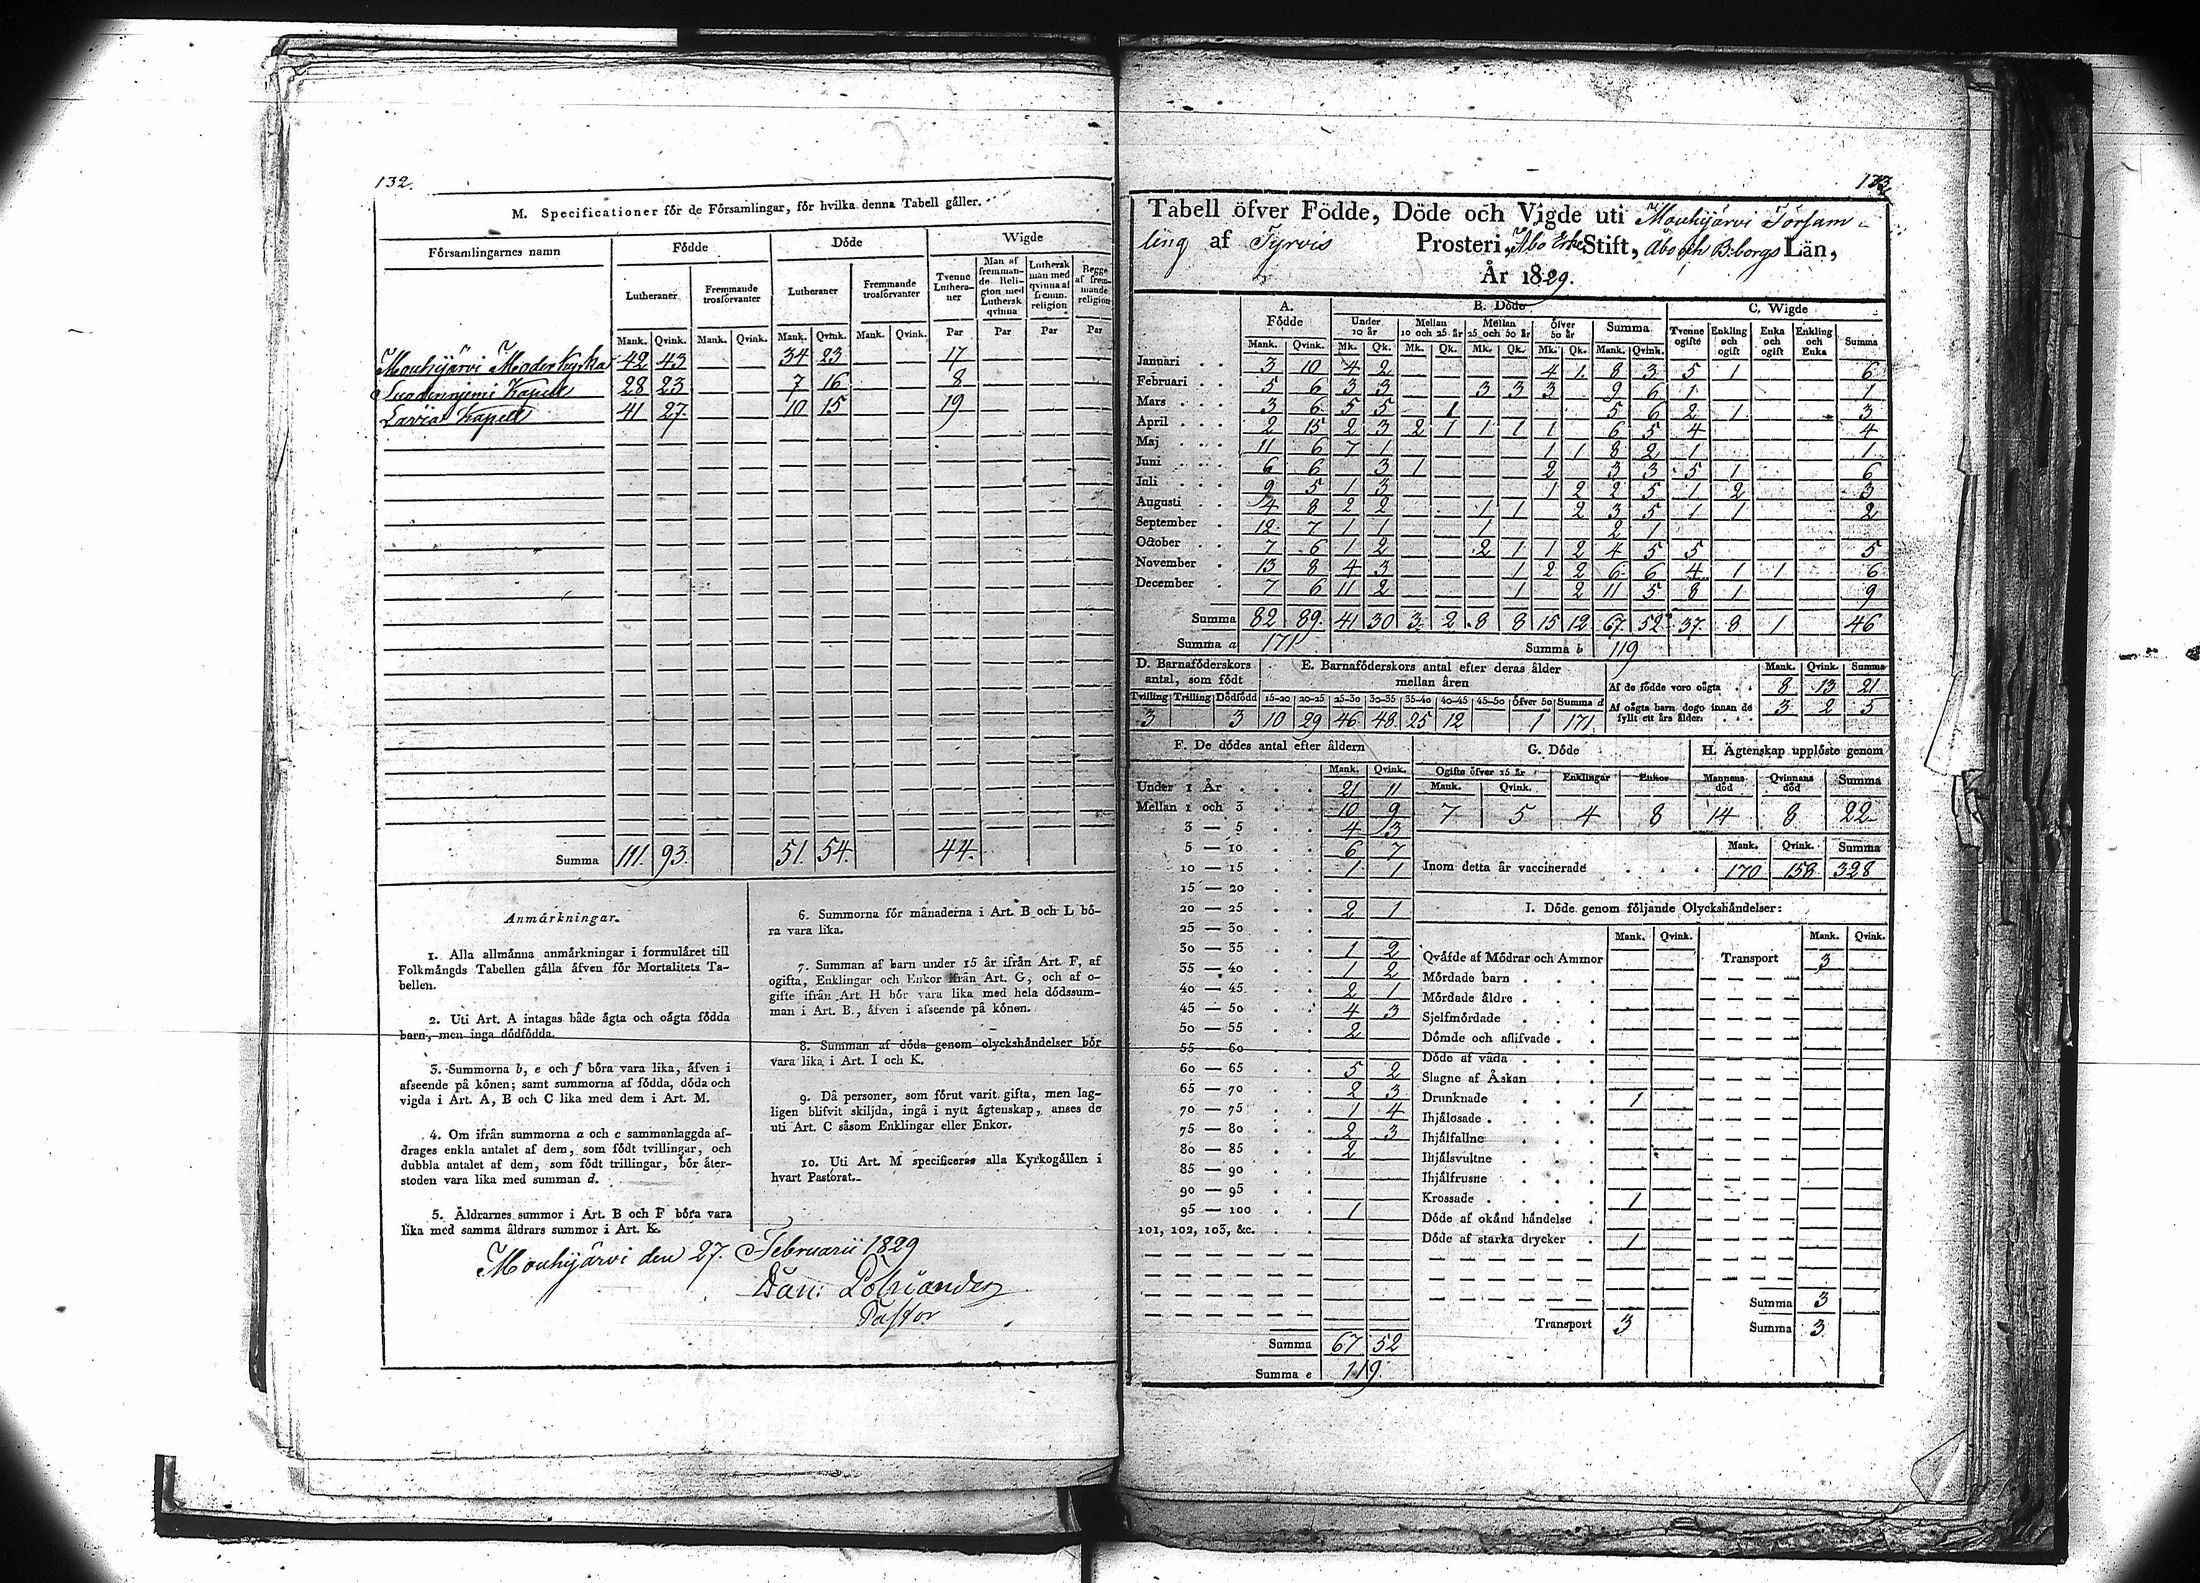 132.
M. Specificationer för de Församlingar, för hvilka denna Tabell gäller.
Församlingarnes namn | Födde | Döde | Wigde
Lutheraner | Fremmande trosförvanter | Lutheraner | Fremmande trosförvanter | Tvenne Lutheraner | Man af fremmande Religion med Luthersk qvinna | Luthersk man med qvinna af fremm. religion | Begge af fremmande religion
Mank. Qvink. Mank. Qvink. Mank. Qvink. Mank. Qvink. Par Par Par Par
Mouhijärvi Moderkyrka 42 43 34 23 17
Suodenniemi Kapell 28 23 7 16 8
Lavia Kapell 41 27 10 15 19
Summa 111. 93. 51. 54. 44.
Anmärkningar.
1. Alla allmänna anmärkningar i formuläret till
Folkmängds Tabellen gälla äfven för Mortalitets Ta-
bellen.
2. Uti Art. A intagas både ägta och oägta födda
barn, men inga dödfödda.
3. Summorna b, e och f böra vara lika, äfven i
afseende på könen; samt summorna af födda, döda och
vigda i Art. A, B och C lika med dem i Art. M.
4. Om ifrån summorna a och c sammanlaggda af-
drages enkla antalet af dem, som födt tvillingar, och
dubbla antalet af dem, som födt trillingar, bör åter-
stoden vara lika med summan d.
5. Åldrarnes summor i Art. B och F böra vara
lika med samma åldrars summor i Art. K.
6. Summorna för månaderna i Art. B och L bö-
ra vara lika.
7. Summan af barn under 15 år ifrån Art. F, af
ogifta, Enklingar och Enkor ifrån Art. G, och af o-
gifte ifrån Art. H bör vara lika med hela dödssum-
man i Art. B., äfven i afseende på könen.
8. Summan af döda genom olyckshändelser bör
vara lika i Art. I och K.
9. Då personer, som förut varit gifta, men lag-
ligen blifvit skiljda, ingå i nytt ägtenskap, anses de
uti Art. C såsom Enklingar eller Enkor.
10. Uti Art. M specificeras alla Kyrkogällen i
hvart Pastorat.
Mouhijärvi den 27. Februarii 1829
Pastor
133
Tabell öfver Födde, Döde och Vigde uti Mouhijärvi Försam-
ling af Tyrvis Prosteri, Åbo Erke Stift, Åbo och B:borgs Län,
År 1829.
A. Födde | B. Döde | C. Wigde
Under 10 år | Mellan 10 och 25 år | Mellan 25 och 50 år | Öfver 50 år | Summa | Tvenne ogifte | Enkling och ogift | Enka och ogift | Enkling och Enka | Summa
Mank. Qvink. Mk. Qk. Mk. Qk. Mk. Qk. Mk. Qk. Mank. Qvink.
Januari 3 10 4 2 4 1 8 3 5 1 6
Februari 5 6 3 3 3 3 3 9 6 1 1
Mars 3 6 5 5 1 5 6 2 1 3
April 2 15 2 3 2 1 1 1 1 6 5 4 4
Maj 11 6 7 1 1 1 8 2 1 1
Juni 6 6 3 1 2 3 3 5 1 6
Juli 9 5 1 3 1 2 2 5 1 2 3
Augusti 4 8 2 2 1 1 2 3 5 1 1 2
September 12 7 1 1 1 2 1
October 7 6 1 2 2 1 1 2 4 5 5 5
November 13 8 4 3 1 2 2 6 6 4 1 1 6
December 7 6 11 2 1 2 11 5 8 1 9
Summa 82 89. 41 30 3 2 8 8 15 12 67 52 37. 8 1 46
Summa a 171 Summa b 119
D. Barnaföderskors antal, som födt
Tvilling Trilling Dödfödd
3 3
E. Barnaföderskors antal efter deras ålder mellan åren
15-20 20-25 25-30 30-35 35-40 40-45 45-50 Öfver 50 Summa d
10 29 46 48 25 12 1 171
Mank. Qvink. Summa
Af de födde voro oägta 8 13 21
Af oägta barn dogo innan de fyllt ett års ålder 3 2 5
F. De dödes antal efter åldern
Mank. Qvink.
Under 1 År 21 11
Mellan 1 och 3 10 9
3 — 5 4 3
5 — 10 6 7
10 — 15 1 1
15 — 20
20 — 25 2 1
25 — 30
30 — 35 1 2
35 — 40 1 2
40 — 45 2 1
45 — 50 4 3
50 — 55 2
55 — 60
60 — 65 5 2
65 — 70 2 3
70 — 75 1 4
75 — 80 2 3
80 — 85 2
85 — 90
90 — 95
95 — 100 1
101, 102, 103, &c.
Summa 67 52
Summa e 119.
G. Döde
Ogifte öfver 15 år | Enklingar | Enkor
Mank. Qvink.
7 5 4 8
H. Ägtenskap upplöste genom
Mannens död | Qvinnans död | Summa
14 8 22
Mank. Qvink. Summa
Inom detta år vaccinerade 170 158 328
I. Döde genom följande Olyckshändelser:
Mank. Qvink. Mank. Qvink.
Qväfde af Mödrar och Ammor
Mördade barn
Mördade äldre
Sjelfmördade
Dömde och aflifvade
Döde af våda
Slagne af Åskan
Drunknade 1
Ihjälosade
Ihjälfallne
Ihjälsvultne
Ihjälfrusne
Krossade 1
Döde af okänd händelse
Döde af starka drycker 1
Transport 3
Transport 3
Summa 3
Summa 3.